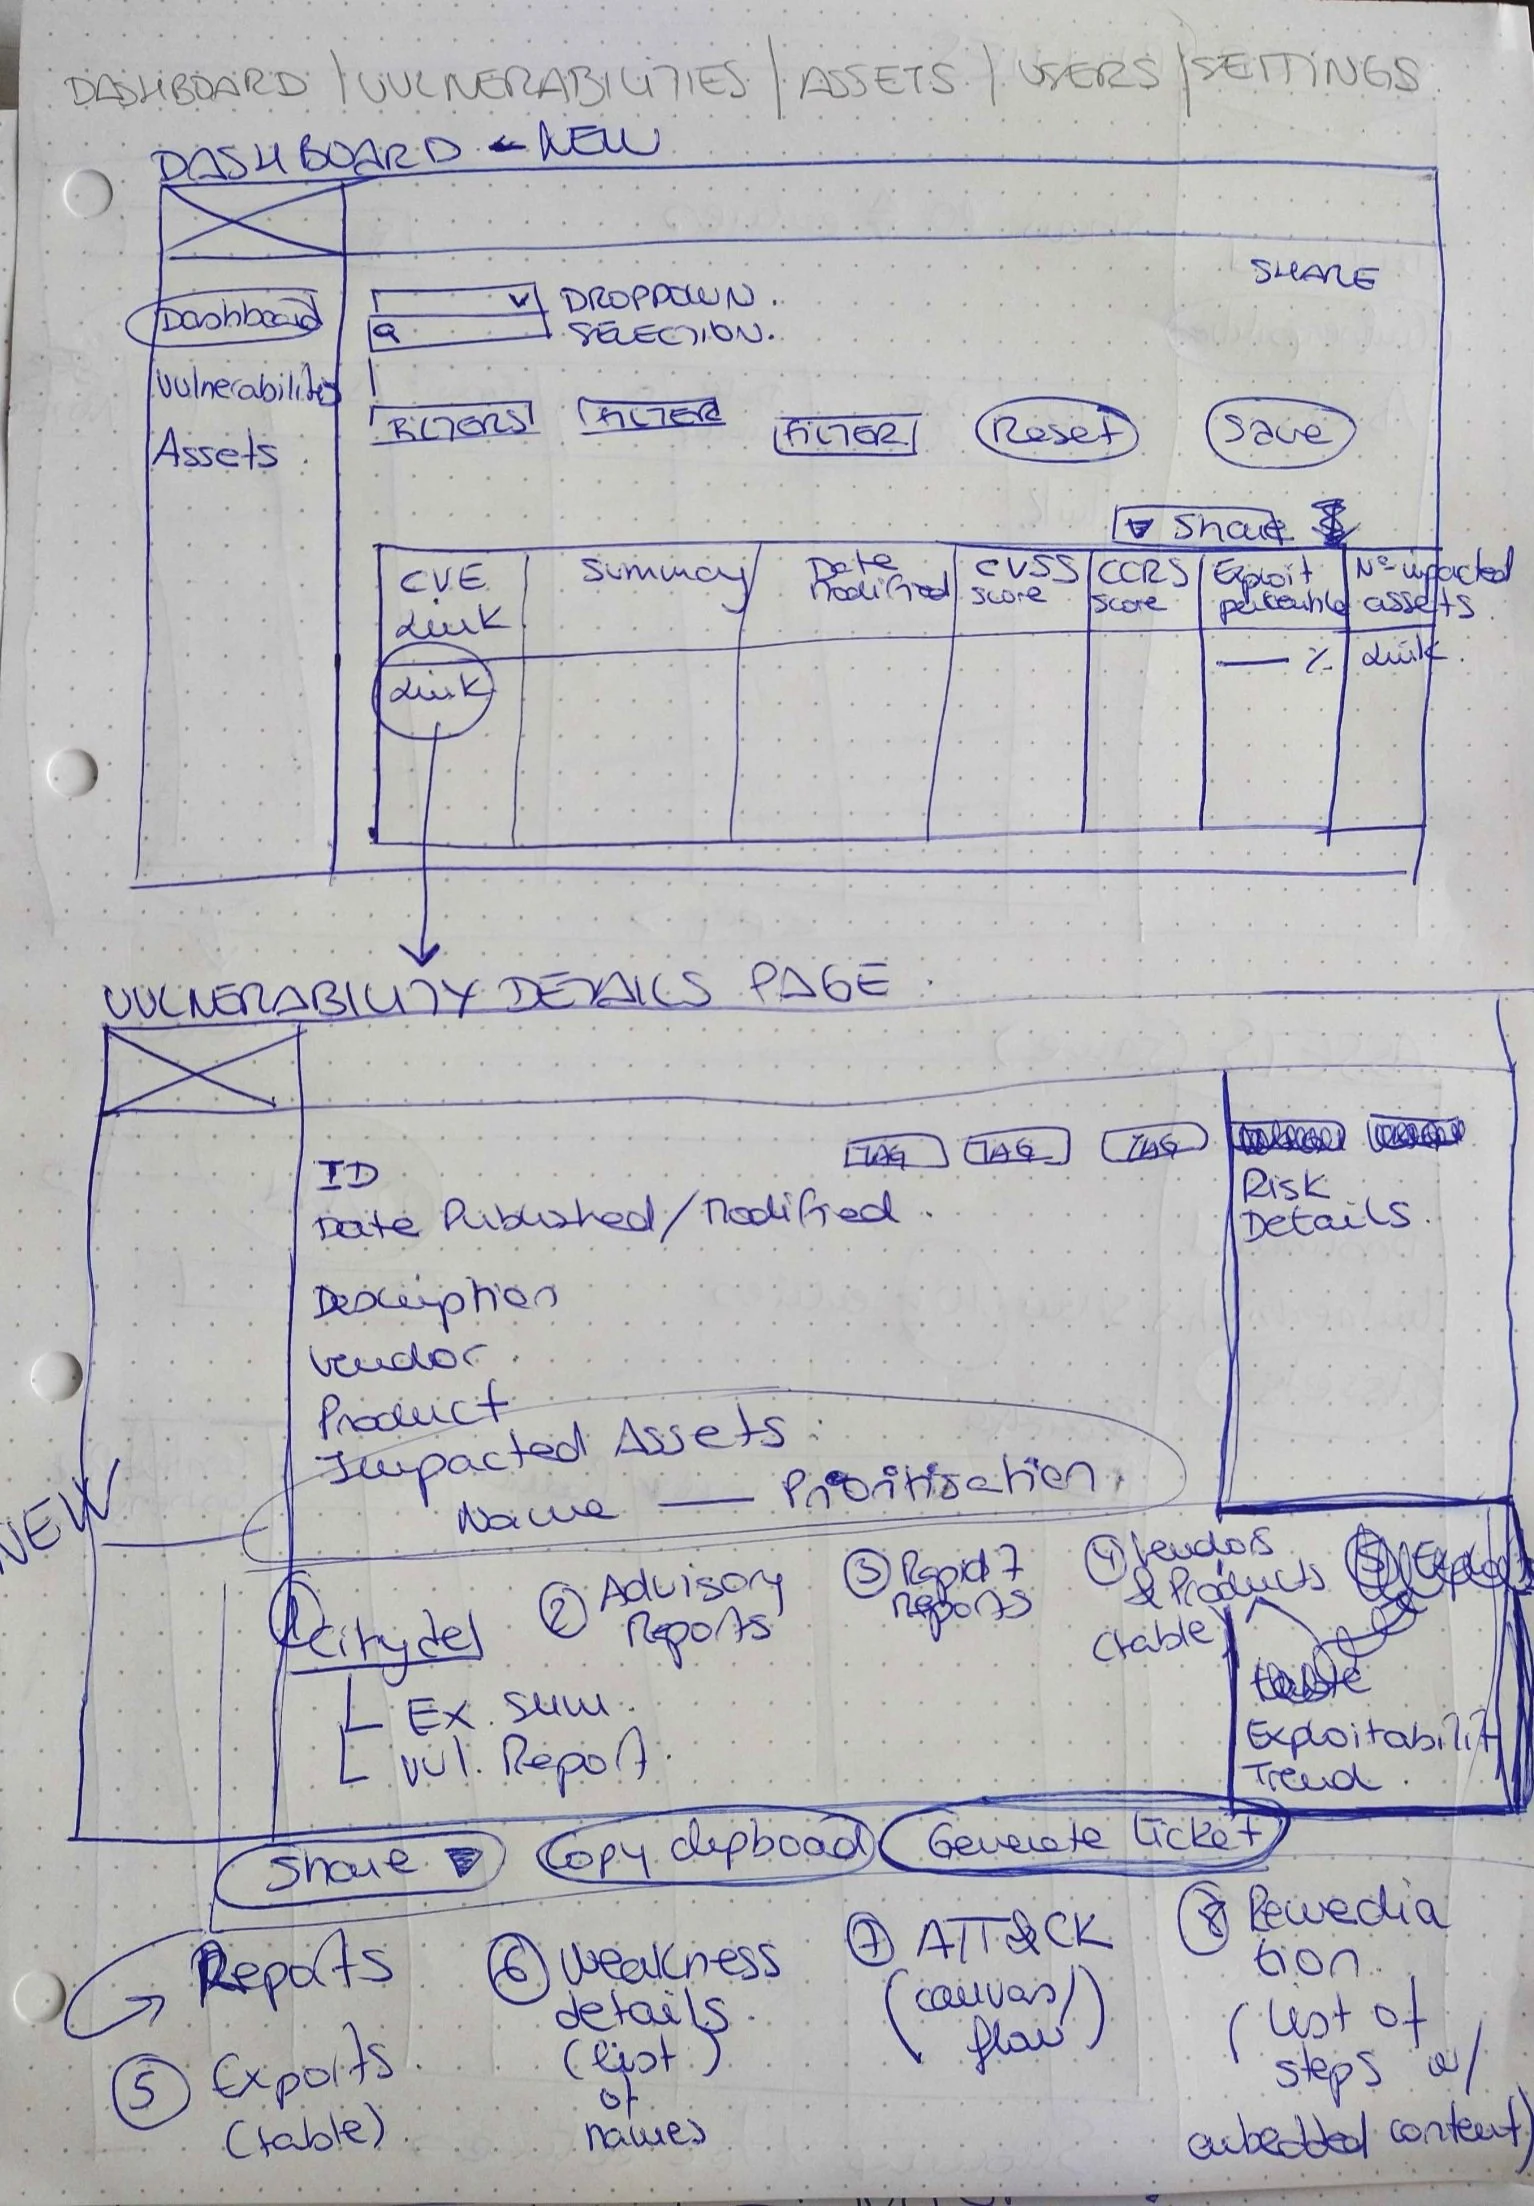 DASHBOARD / VULNERABILITIES / ASSETS / USERS / SETTINGS
DASHBOARD - NEW
SHARE
DROPDOWN.
SELECTION.
Dashboard
Vulnerabilities
Assets
FILTERS
FILTER
FILTER
Reset
Save
Share
CVE
Link
Summary
Date
Modified
CVSS
score
CCRS
score
Exploit
percentile
Nº impacted
assets
Link
%
Link.
VULNERABILITY DETAILS PAGE.
TAG
TAG
TAG
Risk
Details.
ID
Date Published/Modified.
Description
Vendor.
Product
Impacted Assets:
Name — Prioritisation.
NEW
1
Citydel
Ex. sum.
Vul. Report.
2 Advisory
Reports
3 Rapid 7
Reports
4 Vendors
& Products
(table)
5
Exploitability
Trend.
Share
Copy clipboad
Generate ticket
Reports
5 Exploits.
(table).
6 Weakness
details.
(list)
of
names
7 ATT&CK
(canvas/
flow)
8 Remedia
tion.
(List of
steps w/
embedded content)